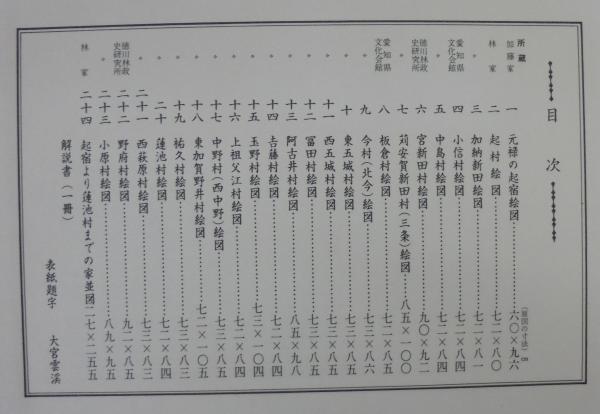 目次
(原図の寸法) cm
所蔵
加藤家 一 元禄の起宿絵図…………六〇×九六
林家 二 起村絵図…………七二×八〇
〃 三 加納新田絵図…………七二×八一
愛知県文化会館 四 小信村絵図…………七二×八四
〃 五 中島村絵図…………七二×八四
徳川林政史研究所 六 宮新田村絵図…………九〇×九二
〃 七 苅安賀新田村(三条)絵図…………八五×一〇〇
愛知県文化会館 八 板倉村絵図…………七二×八五
〃 九 今村(北今)絵図…………七三×八六
〃 十 東五城村絵図…………七二×八五
〃 十一 西五城村絵図…………七三×八五
〃 十二 冨田村絵図…………七二×八四
〃 十三 阿古井村絵図…………八五×九八
〃 十四 吉藤村絵図…………七二×八四
〃 十五 玉野村絵図…………七三×一〇〇
〃 十六 上祖父江村絵図…………七二×八四
〃 十七 中野村(西中野)絵図…………七三×八五
〃 十八 東加賀野井村絵図…………七二×一〇五
〃 十九 祐久村絵図…………七三×八三
〃 二十 蓮池村絵図…………七二×八五
〃 二十一 西萩原村絵図…………七三×八三
徳川林政史研究所 二十二 野府村絵図…………九二×八五
〃 二十三 小原村絵図…………八九×九五
林家 二十四 起宿より蓮池村までの家並図二七×二五五
解説書(一冊)
表紙題字 大宮雲渓